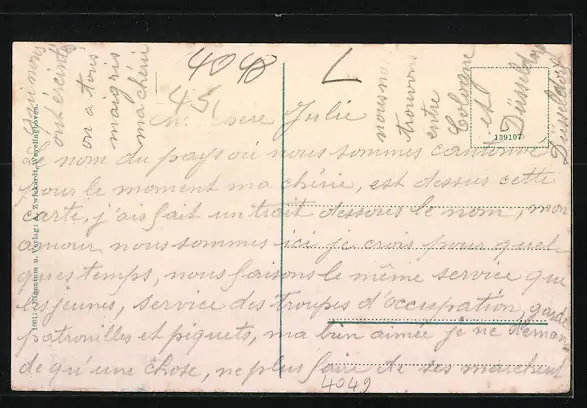 4048
L
45
Ma chère Julie
Le nom du pays où nous sommes cantonné
pour le moment ma chérie, est dessus cette
carte, j'ais fait un trait dessous le nom, mon
amour nous sommes ici je crois pour quel
ques temps, nous faisons le même service que
les jeunes, service des troupes d'occupation, garde
patrouilles et piquets, ma bien aimée je ne deman-
de qu'une chose, ne plus faire de ses marches
4049
nous
ont éreintés
on a tous
maigris
ma chéri
nous nous
trouvons
entre
Cologne
et
Düsseldorf
Düsseldorf
139107
Eigentum u. Verlag: A. Zwiekardt, Wevelinghoven.